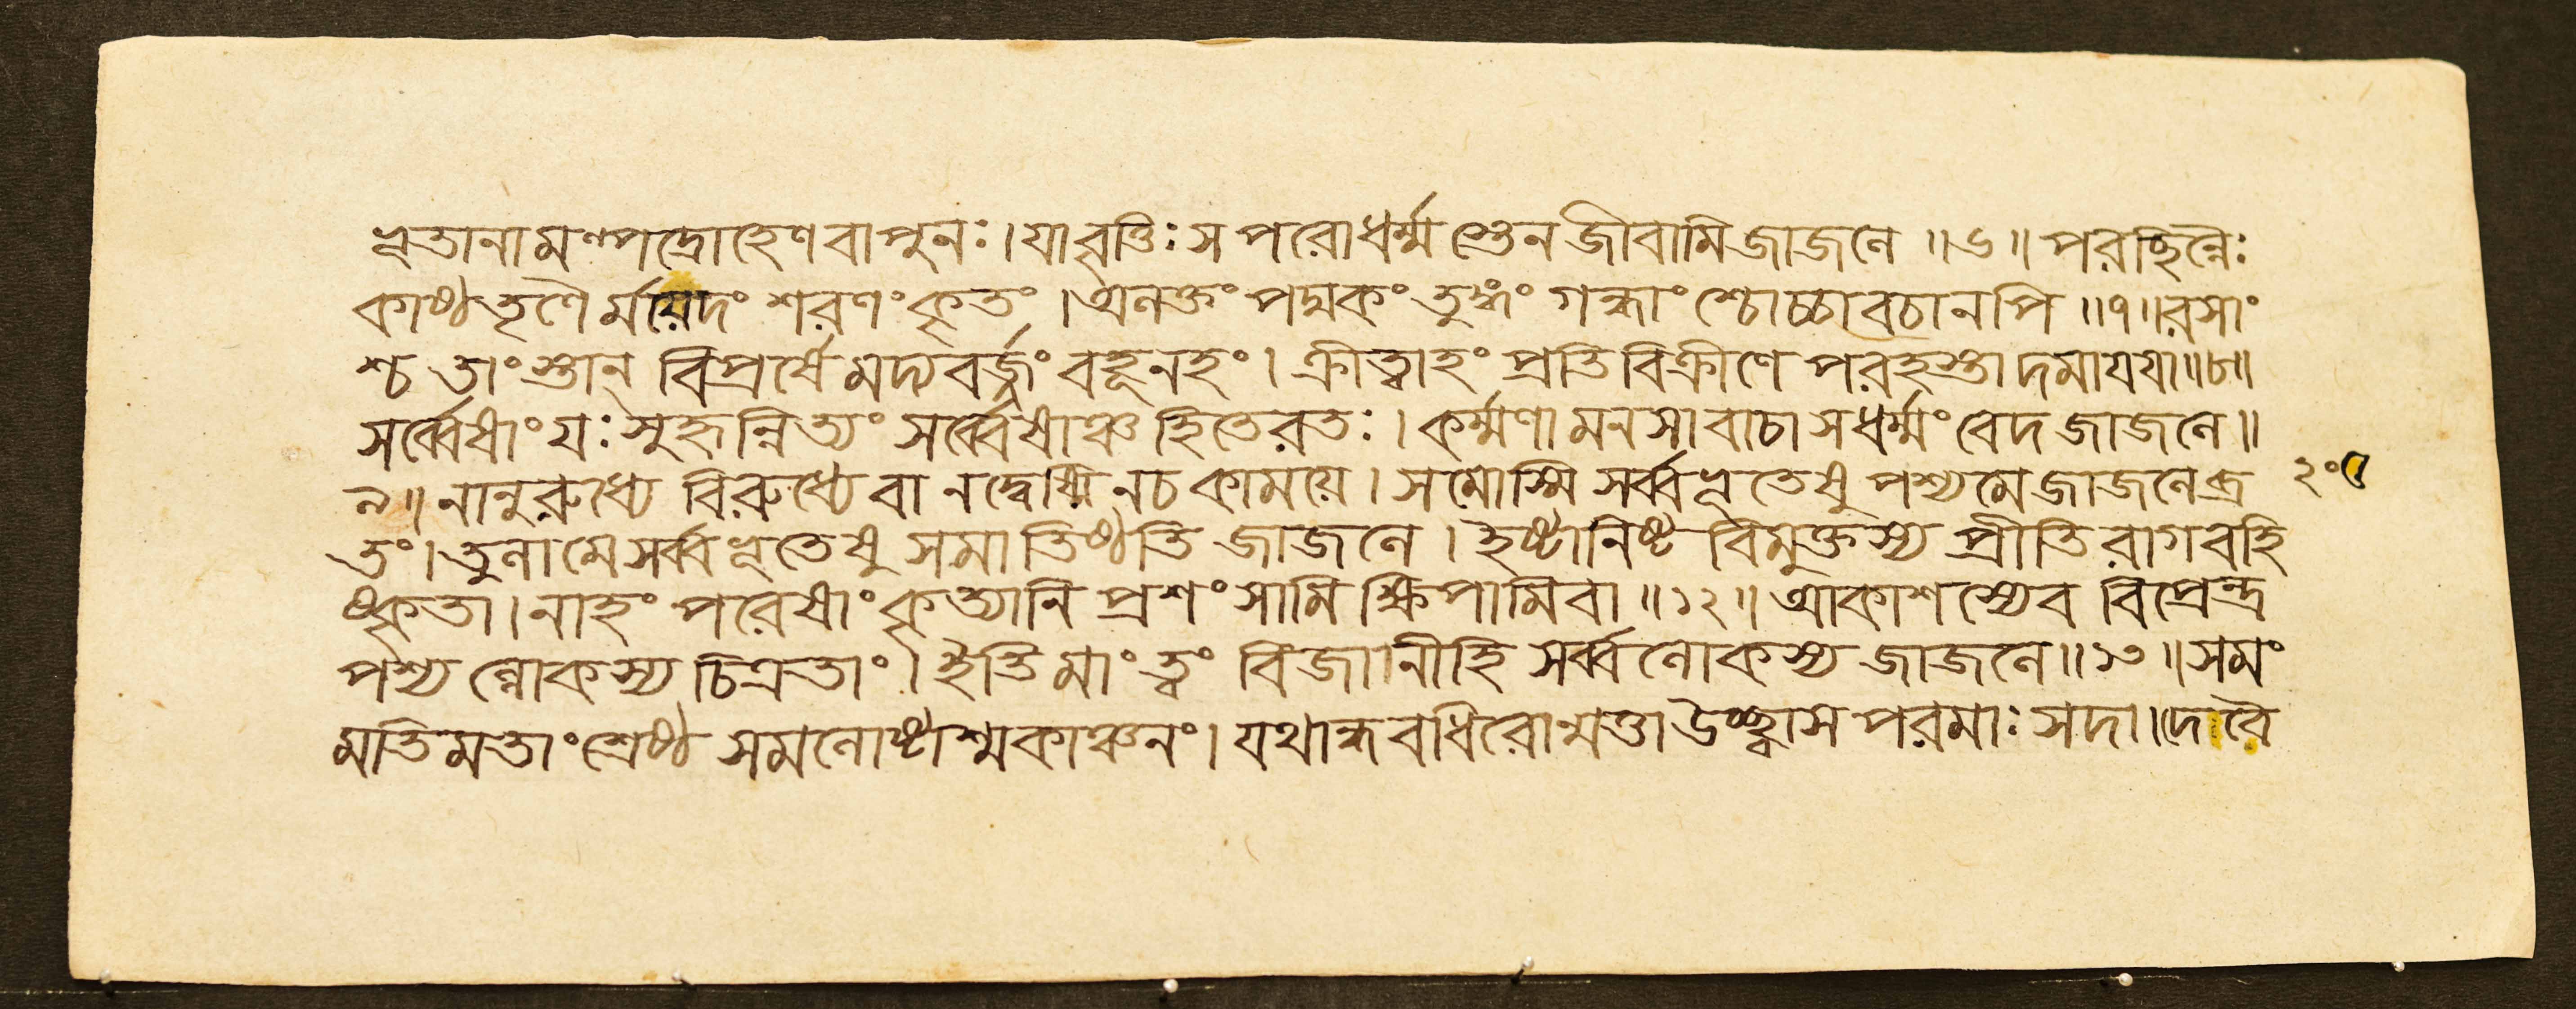 ভূতানামল্পদ্রোহেণবাপুনঃ।যাবৃত্তিঃসপরোধর্ম্মস্তেনজীবামিজাজলে॥৬॥পরচ্ছিন্নৈঃ
কাষ্ঠতৃণৈর্ময়েদংশরণংকৃতং।অলক্তংপদ্মকংতুঙ্গংগন্ধাংশ্চোচ্চাবচানপি॥৭॥রসাং
শ্চতাংস্তান্ বিপ্রর্ষেমদ্যবর্জ্জংবহূনহং।ক্রীত্বাহংপ্রতিবিক্রীণেপরহস্তাদমাযযা॥৮॥
সর্ব্বেষাংযঃসুহৃন্নিত্যংসর্ব্বেষাঞ্চহিতেরতঃ।কর্ম্মণামনসাবাচাসধর্ম্মংবেদজাজলে॥
৯॥নানুরুধ্যেবিরুধ্যেবানদ্বেষ্মিনচকাময়ে।সমোস্মিসর্ব্বভূতেষুপশ্যমেজাজলেব্র ২০৫
তং।তুলামেসর্ব্বভূতেষুসমাতিষ্ঠতিজাজলে।ইষ্টানিষ্টবিমুক্তস্যপ্রীতিরাগবহি
ষ্কৃতা।নাহংপরেষাংকৃত্যানিপ্রশংসামিক্ষিপামিবা॥১২॥আকাশস্যেববিপ্রেন্দ্র
পশ্যল্লোকস্যচিত্রতাং।ইতিমাংত্বংবিজানীহিসর্ব্বলোকস্যজাজলে॥১৩॥সমং
মতিমতাংশ্রেষ্ঠসমলোষ্টাশ্মকাঞ্চনং।যথান্ধবধিরোন্মত্তাউচ্ছ্বাসপরমাঃসদা।দেবৈ